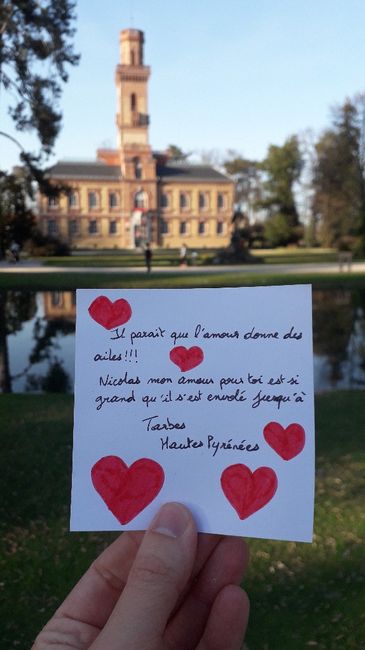 Il parait que l'amour donne des
ailes!!!
Nicolas mon amour pour toi est si
grand qu'il s'est envolé jusqu'à
Tarbes
Hautes Pyrénées